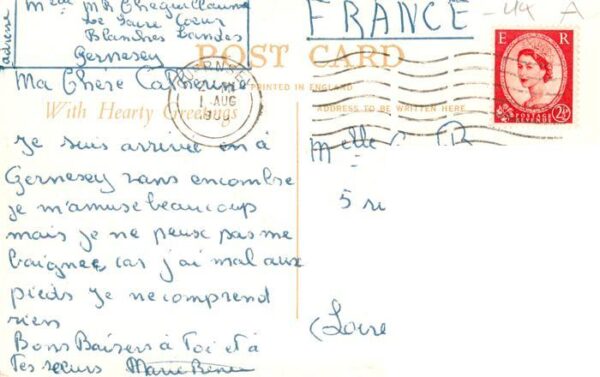 adresse
Melle MR Cheguillaume
Le Sacré Cœur
Blandres Landes
Gernesey
FRANCE
A
POST CARD
PRINTED IN ENGLAND
With Hearty Greetings
ADDRESS TO BE WRITTEN HERE
GUERNSEY
1 AUG
E R
POSTAGE
REVENUE
2½D
Ma Chère Catherine
Je suis arrivée en à
Gernesey sans encombre
je m'amuse beaucoup
mais je ne peux pas me
baignee car j'ai mal aux
pieds Je ne comprend
rien
Bons Baisers à Toi et à
Tes sœurs Marie
Melle
5
Loire